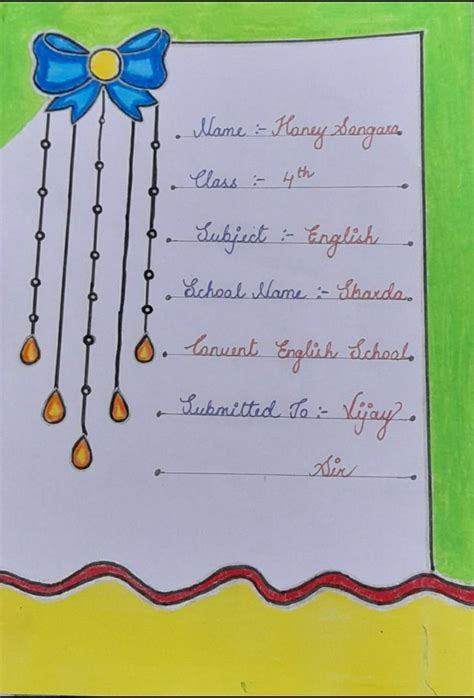 Name :- Honey Sangara
Class :- 4th
Subject :- English
School Name :- Sharda
Convent English School
Submitted To :- Vijay
Sir